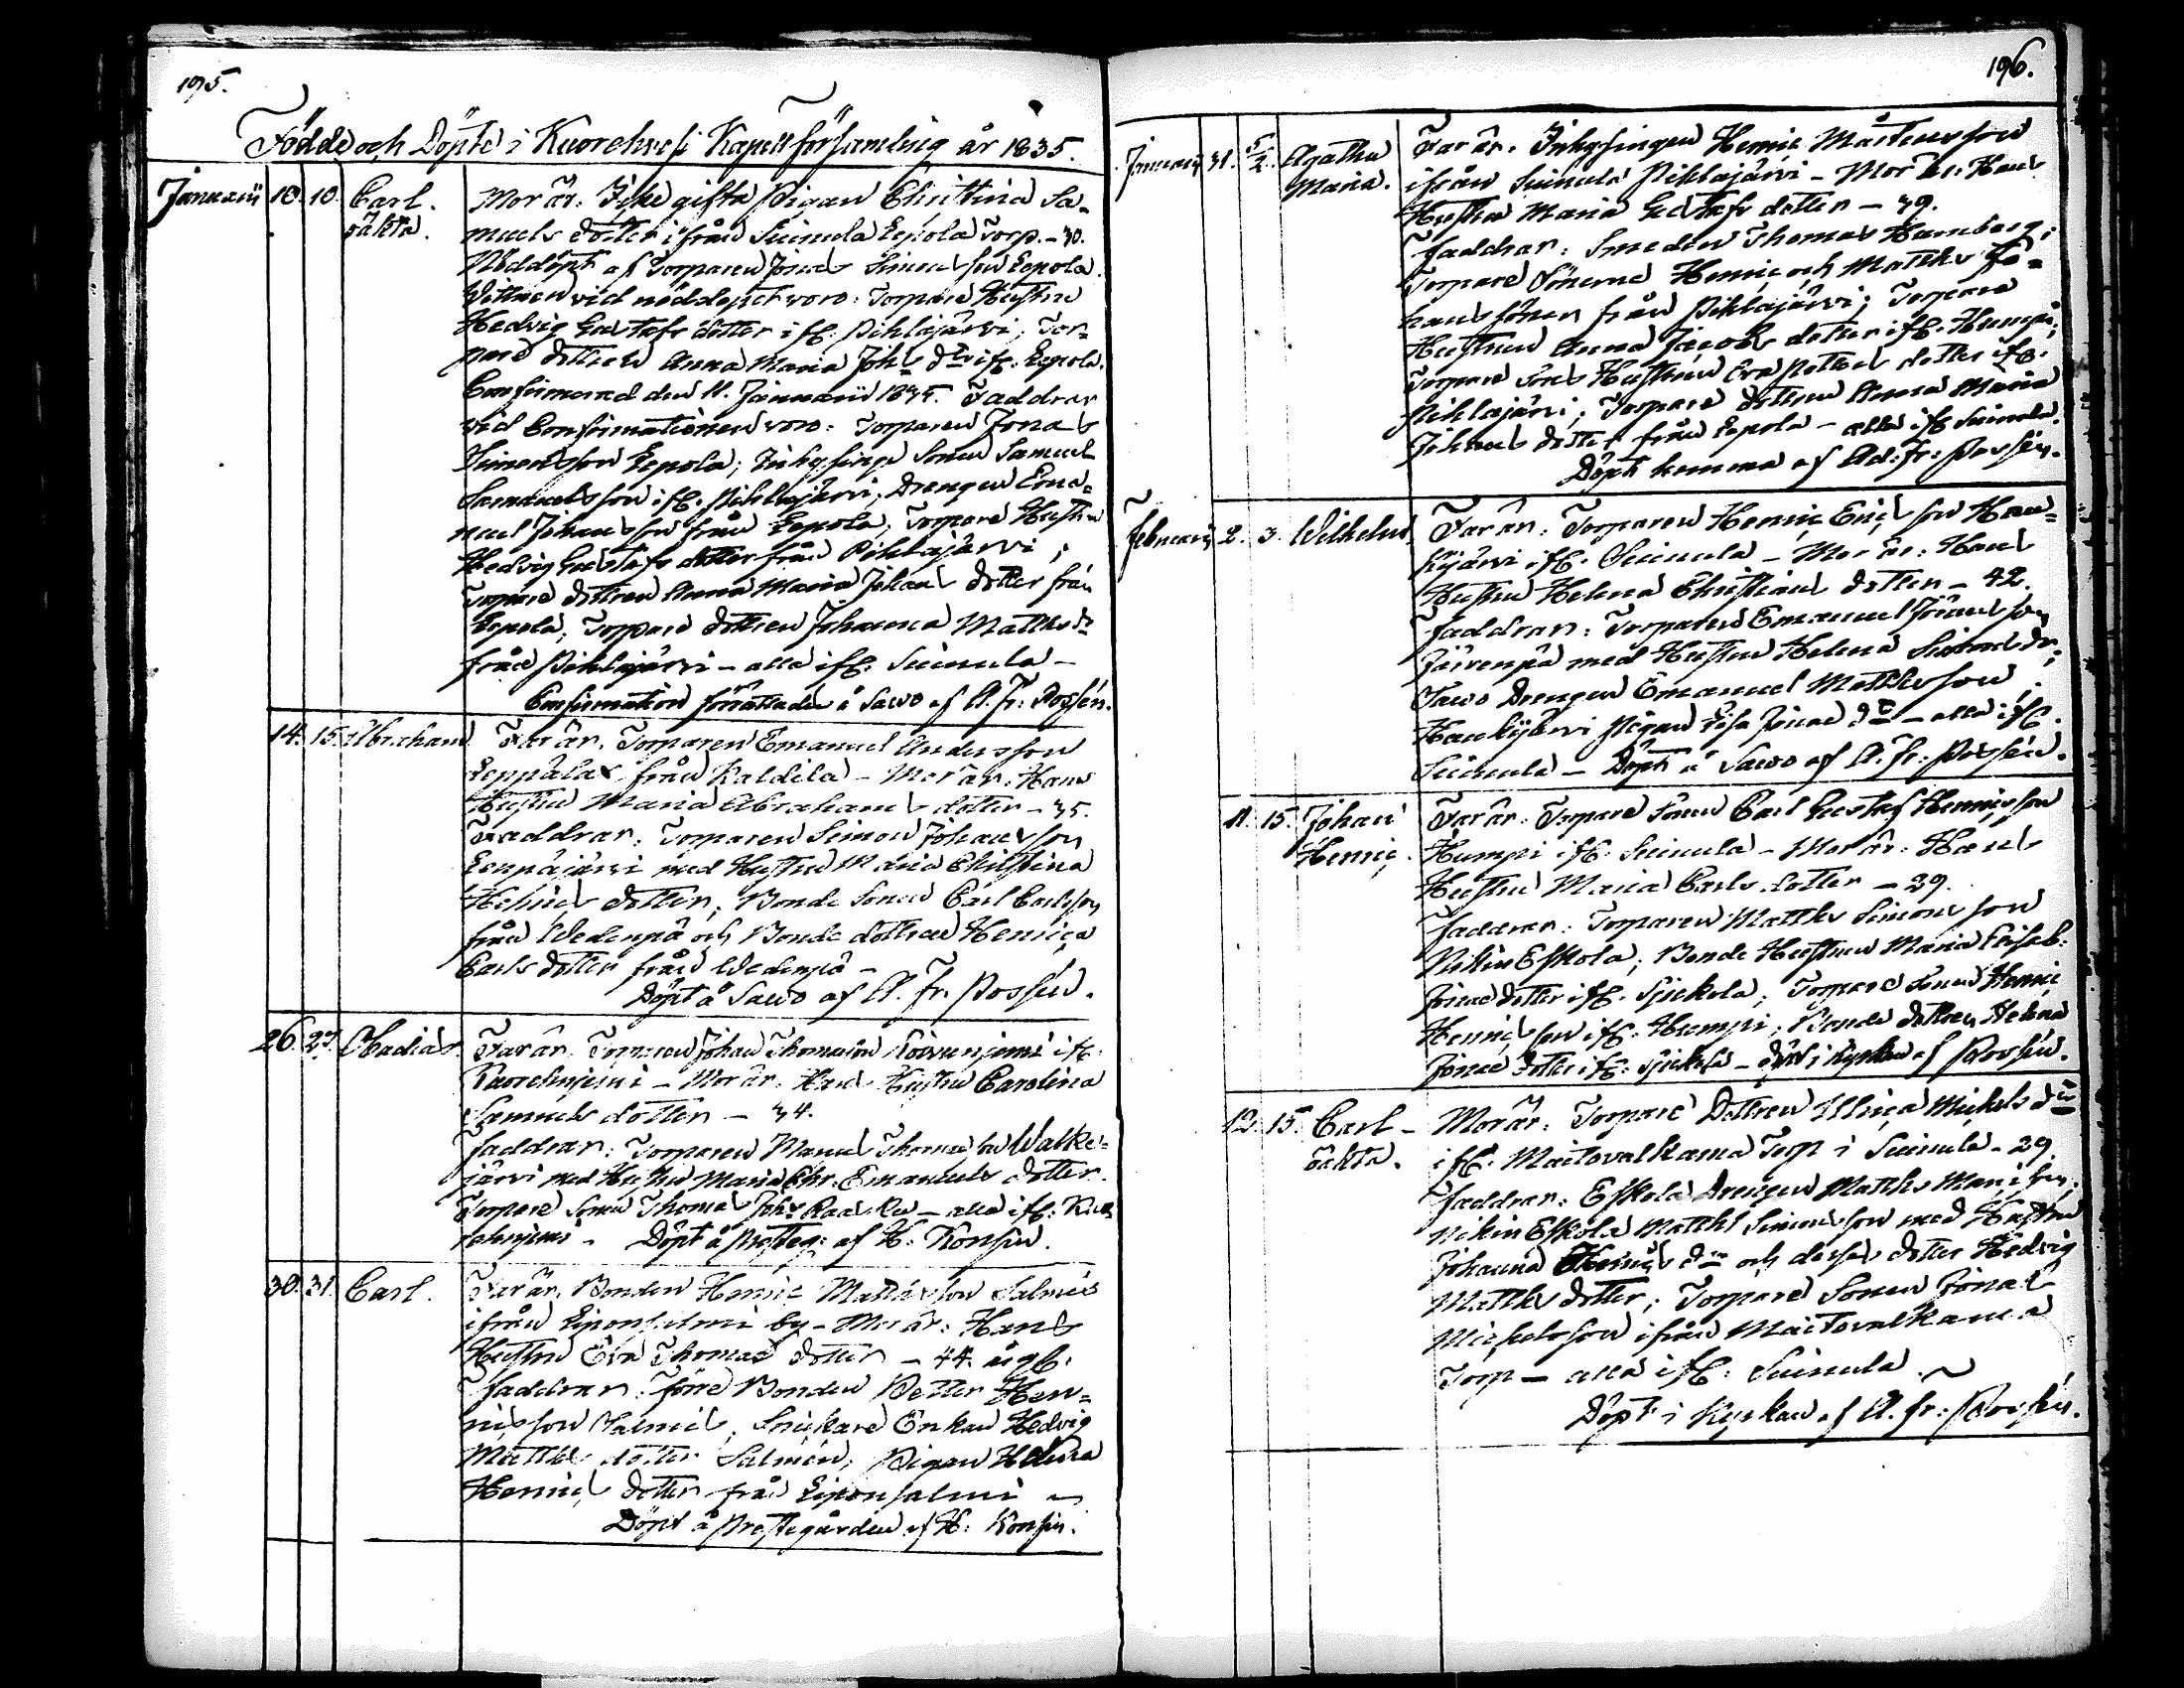 195.
Födde och Döpte i Kuorehvesi Kapell församling år 1835.
Januarii 10. 10. Carl. oäkta. Mor är: Icke gifta Pigan Christina Sa=
muels dotter ifrån Suinula Eepola Torp. - 30.
Nöddöpt af Torparen Jonas Simons son Eepola.
Vittnen vid nöddopet voro: Torpare Hustru
Hedvig Gustafs dotter ifr. Pihlajärvi; Tor=
pare dottren Anna Maria Joh:s dr ifr. Eepola.
Confirmerad den 11. Januarii 1835. Faddrar
vid Confirmationen voro: Torparen Jonas
Simonsson Eepola; Inhysinge Sonen Samuel
Samuelsson ifr. Pihlajärvi; Drengen Ema=
nuel Johansson från Eepola; Torpare Hustru
Hedvig Gustafs dotter från Pihlajärvi;
Torpare dottren Anna Maria Johans dotter från
Eepola; Torpare dottren Johanna Matths dr
från Pihlajärvi - alla ifr. Suinula -
Confirmation förrättades å Sawo af A. Fr: Possén.
14. 15. Abraham Far är. Torparen Emanuel Andersson
från Kaldila - Mor är. Hans
Hustru Maria Abrahams dotter - 35.
Faddrar: Torparen Simon Johansson
med Hustru Maria Christina
dotter; Bonde Sonen Carl Carlsson
från Wedenpä och Bonde dottren Henrica
Carls dotter från Wedenpä -
Döpt å Sawo af A. Fr. Possén.
26. 27. Obadias Far är. Torparen Johan Thomasson Koivuniemi ifr.
- Mor är. Hans Hustru Carolina
Samuels dotter - 34.
Faddrar: Torparen Manuel Thomas son Walke=
järvi med Hustru Maria Chr. Emanuels dotter.
Torpare Sonen Thomas Joh:s - alla ifr:
Döpt å Presteg: af H: Konsin.
30. 31. Carl. Far är. Bonden Henric Mattsson Salmis
ifrån by - Mor är: Hans
Hustru Eva Thomas dotter - 44. årg.
Faddrar: förre Bonden Petter Hen=
ricsson Salmis; Snickare Enkan Hedvig
Matths dotter Salmén; Pigan Helena
Henrics dotter från
Döpt å Prestegården af H: Konsin.
196.
Januarii 31. 1/2. Agatha Maria. Far är. Inhysingen Henric Mårtensson
ifrån Suinula Pihlajärvi - Mor är: Hans
Hustru Maria Gustafs dotter - 39.
Faddrar: Smeden Thomas Hamberg;
Torpare Sönerne Henric och Matths Jo=
hans söner från Pihlajärvi; Torpare
Hustrun Anna Jacobs dotter ifr. Humpi;
Torpare Sons Hustrun Eva Petters dotter ifr.
Pihlajärvi; Torpare dottren Anna Maria
Johans dotter från Eepola - alla ifr Suinula.
Döpt hemma af Ad: Fr: Possén.
Februarii 2. 3. Wilhelm. Far är: Torparen Henric Erics son Hau=
kijärvi ifr. Suinula - Mor är: Hans
Hustru Helena Christians dotter - 42.
Faddrar: Torparen Emanuel Jöransson
Järvenpä med Hustru Helena Simons dr;
Sawo Drengen Emanuel Matthsson;
Haukijärvi Pigan Lisa Jonae dr - alla ifr.
Suinula - Döpt å Sawo af A. Fr: Possén.
11. 15. Johan Henric. Far är. Torpare Sonen Carl Gustaf Henricsson
Humpi ifr. Suinula - Mor är: Hans
Hustru Maria Carls dotter - 29.
Faddrar: Torparen Matths Simonsson
Nikin Eskola; Bonde Hustrun Maria Elisab:
Jonae dotter ifr. Spickola; Torpare Sonen Henric
Henricsson ifr. Humpi; Bonde dottren Helena
Jonae dotter ifr. Spickola - döpt i Kyrkan af Possén.
12. 15. Carl - oäkta. Mor är: Torpare Dottren Ulrica Michels dr
ifr. Maitovalkama Torp i Suinula - 29
Faddrar: Eskola Drengen Matths
Nikin Eskola Matths Simonsson med Hustru
Johanna Henrics dr och deras dotter Hedvig
Matths dotter; Torpare Sonen Jonas
Michelsson ifrån Maitovalkama
Torp - alla ifr: Suinula.
Döpt i Kyrkan af A. Fr: Possén.